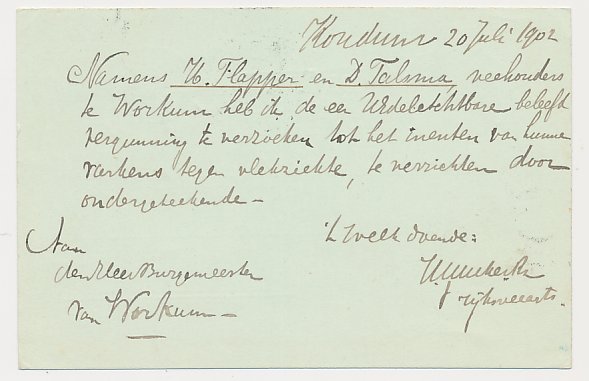 Koudum 20 Juli 1902
Namens H. Flapper en D. Talsma, veehouders
te Workum heb ik de eer UEdelachtbare beleefd
vergunning te verzoeken tot het inenten van hunne
varkens tegen vlekziekte, te verrichten door
ondergeteekende —
't Welk doende:
Aan
den Heer Burgemeester
rijksveearts.
van Workum —